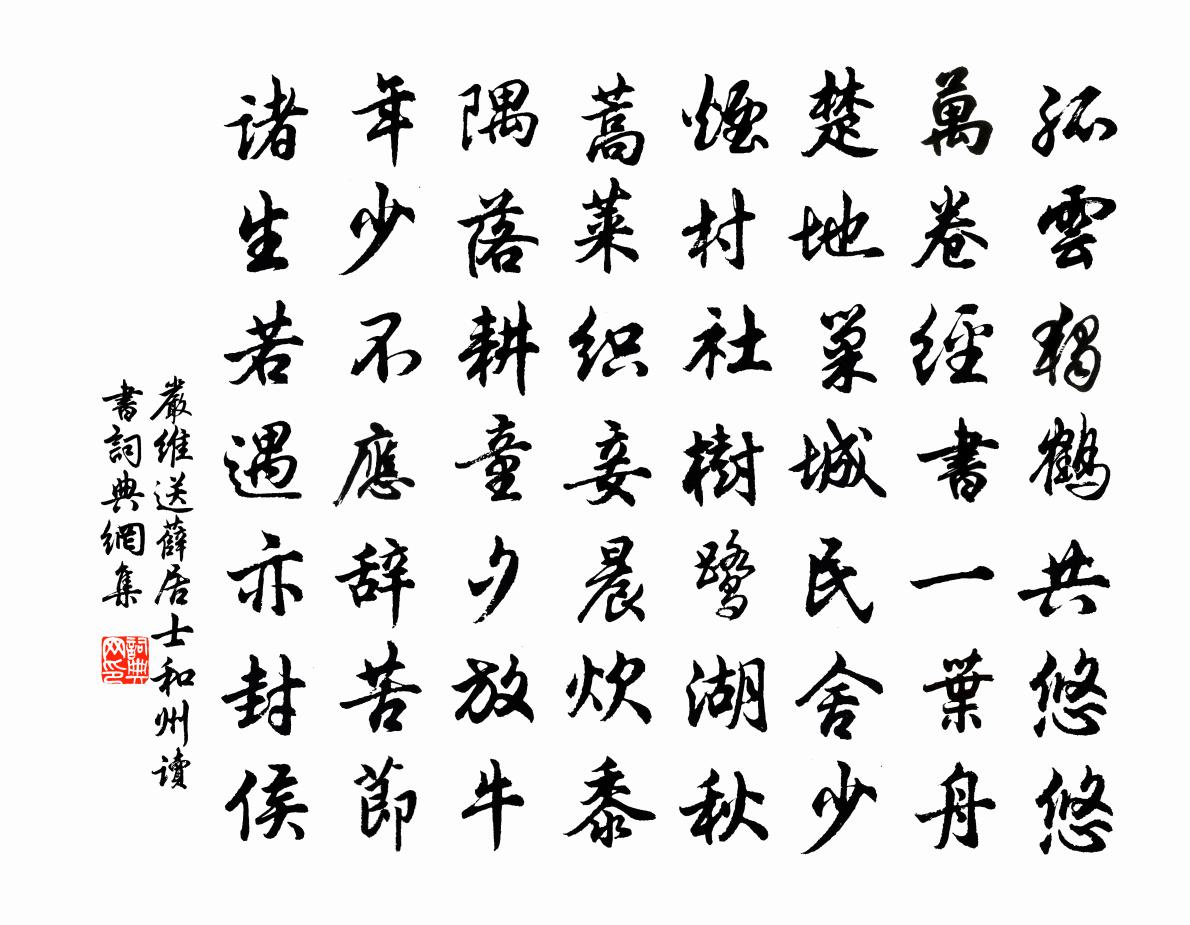 孤雲獨鶴共悠悠
萬卷經書一葉舟
楚地巢城民舍少
煙村社樹鷺湖秋
蒿萊織妾晨炊黍
隅落耕童夕放牛
年少不應辞苦節
諸生若遇亦封侯
嚴維送薛居士和州讀
書詞典網集
詞典网印